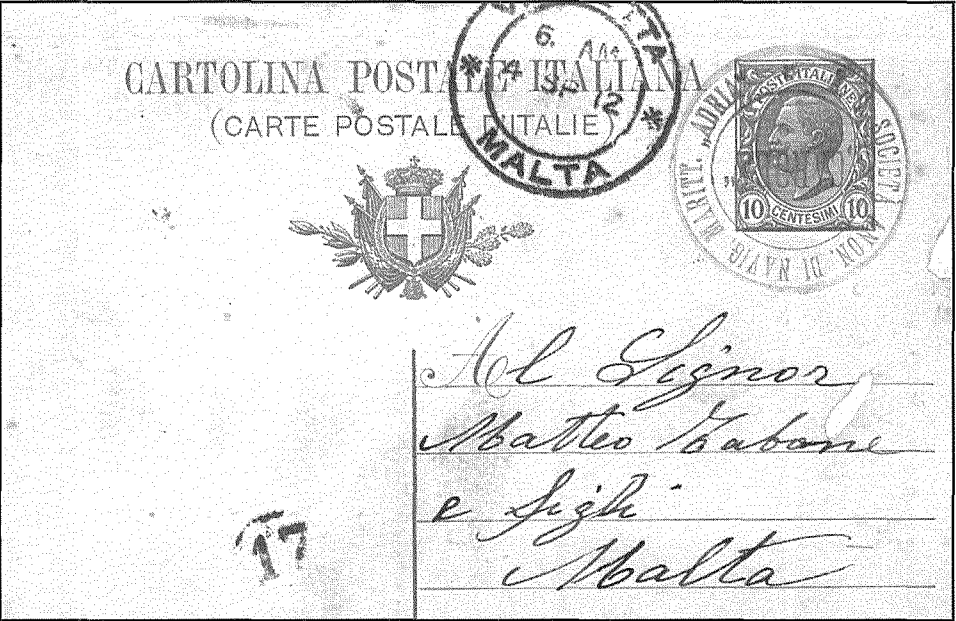 CARTOLINA POSTALE ITALIANA
(CARTE POSTALE D'ITALIE)
6. AM
4 SP 12
* MALTA *
POSTE ITALIANE
10 CENTESIMI 10
SOCIETÀ ANON. DI NAVIG. MARITT. „ADRIA"
Al Signor
Matteo
e Figli
Malta
17